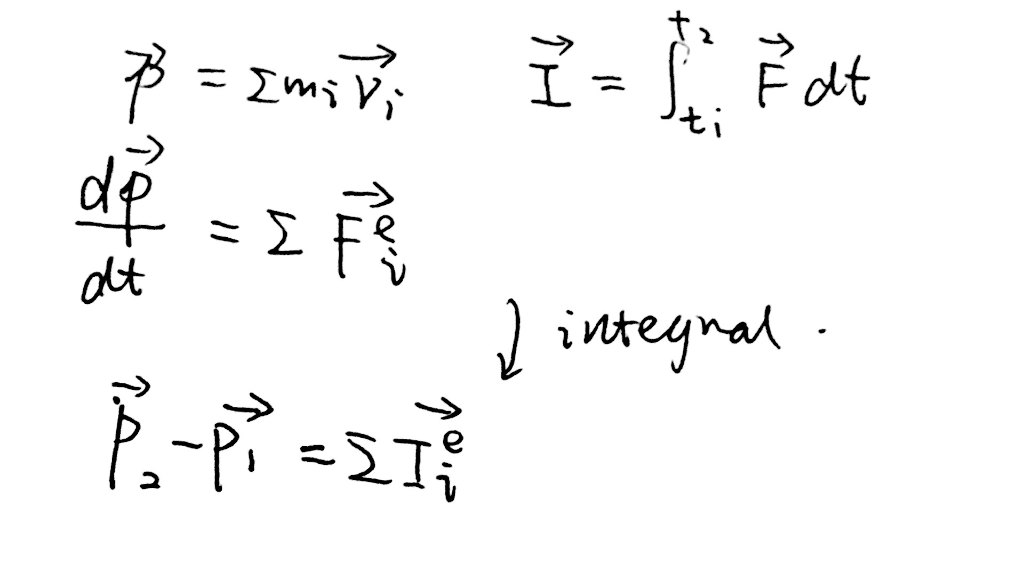 p⃗ = Σ mᵢ v⃗ᵢ    I⃗ = ∫_{tᵢ}^{t₂} F⃗ dt
dp⃗/dt = Σ F⃗ᵢᵉ
↓ integral .
p⃗₂ - p⃗₁ = Σ I⃗ᵢᵉ